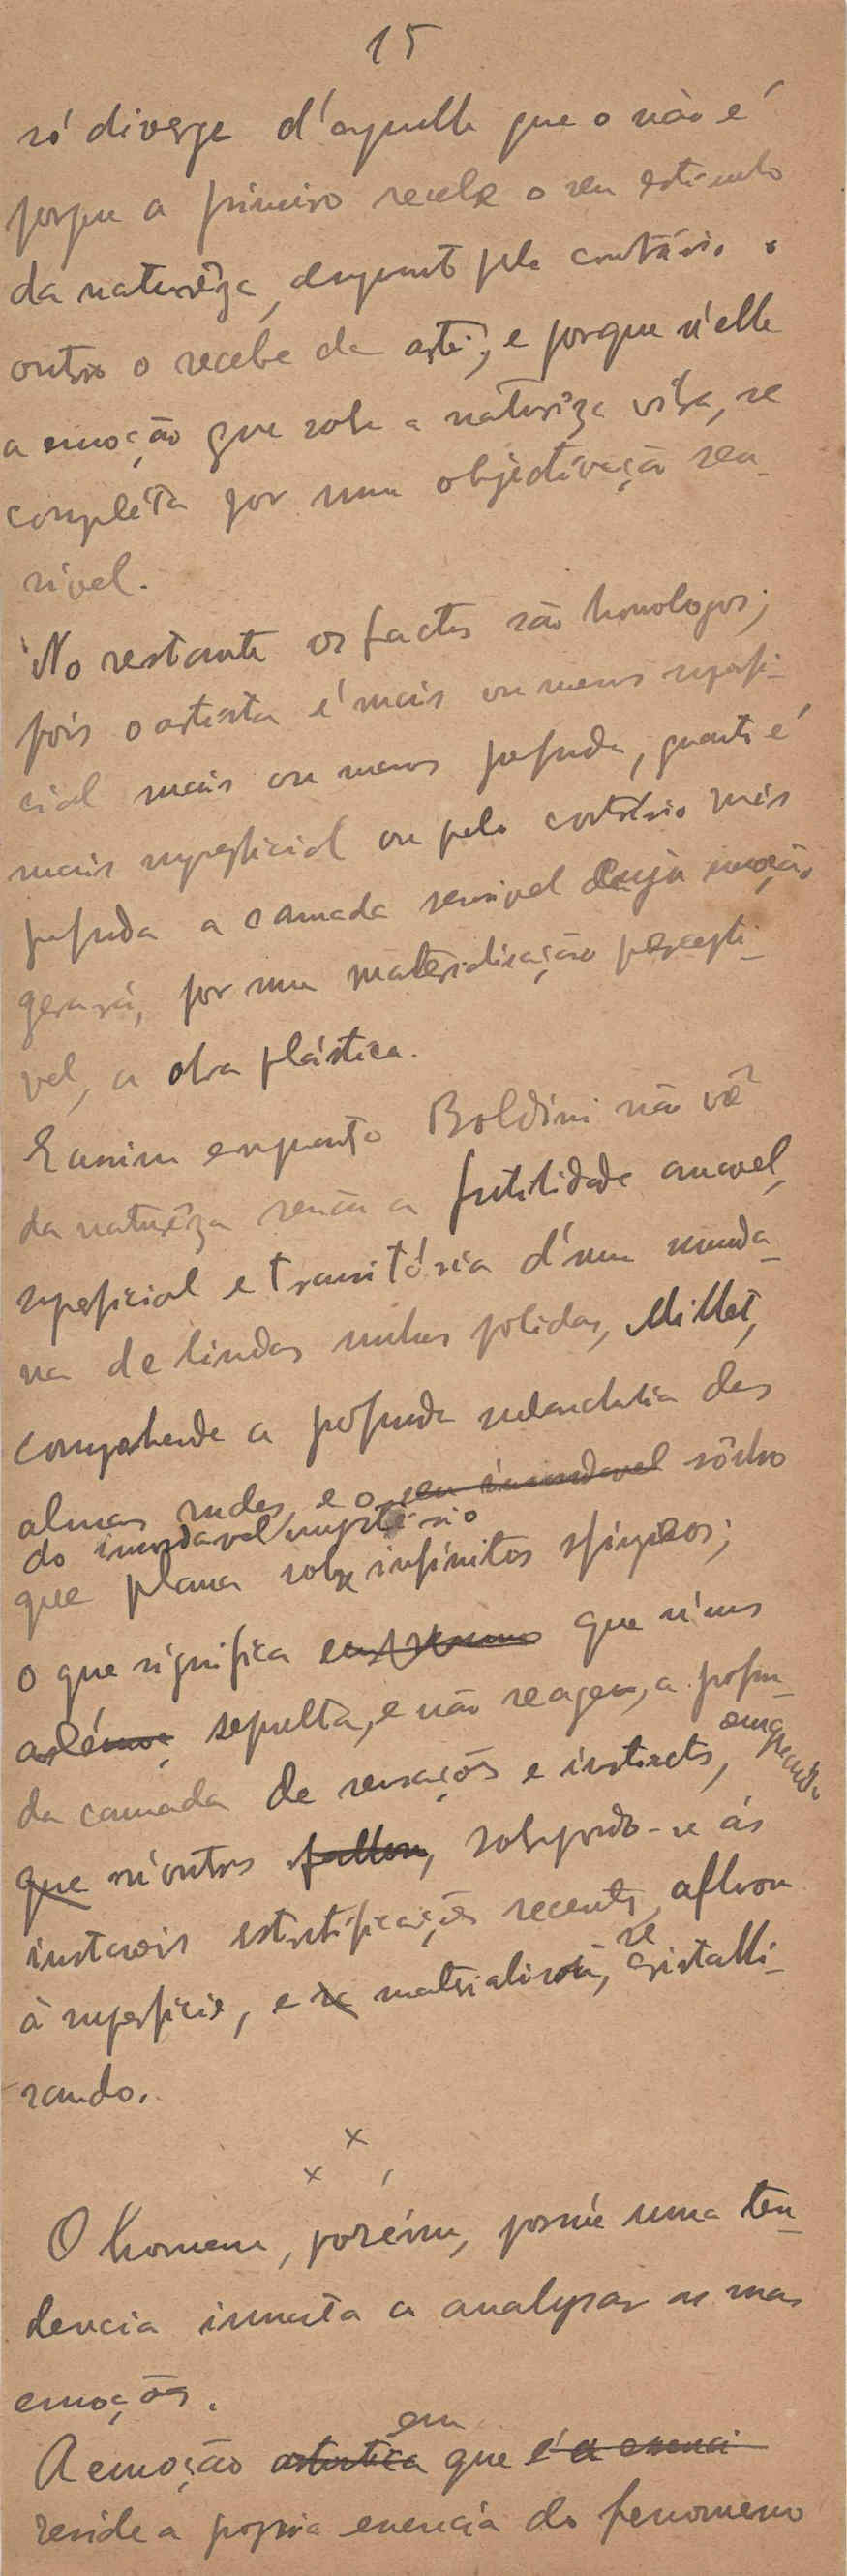 15
só diverge d'aquelle que o não é
porque o primeiro recebe o seu estimulo
da naturêza, enquanto pelo contrário o
outro o recebe da arte; e porque n'elle
a emoção que sobe a naturêza viva, se
complèta por uma objectivação sen-
sivel.
No restante os factos são homologos;
pois o artista é mais ou menos superfi-
cial mais ou menos profundo, quanto é
mais superficial ou pelo contrário mais
profunda a camada sensivel cuja emoção
gerará, por uma materialisação percepti-
vel, a obra plástica.
E assim enquanto Boldini não vê
da naturêza senão a futilidade amavel,
superficial e transitória d'uma munda-
na de lindas unhas polidas, Millet,
comprehende a profunda melancholia das
almas rudes, e o seu insondavel sônho
do insondavel mystério
que plana sobre infinitos sfingicos;
o que significa que n'uns
sepulta, e não reagem, a profun-
da camada de sensações e instinctos, emquanto
que n'outros fallou, sobrepondo-se ás
instaveis estratificações recentes, afflora
à superficie, e se materialisa, se cristalli-
sando.
x x ,
O homem, porém, possúe uma ten-
dencia innata a analysar as suas
emoções.
em
A emoção artistica que é a essenci
reside a propria essencia do fenomeno